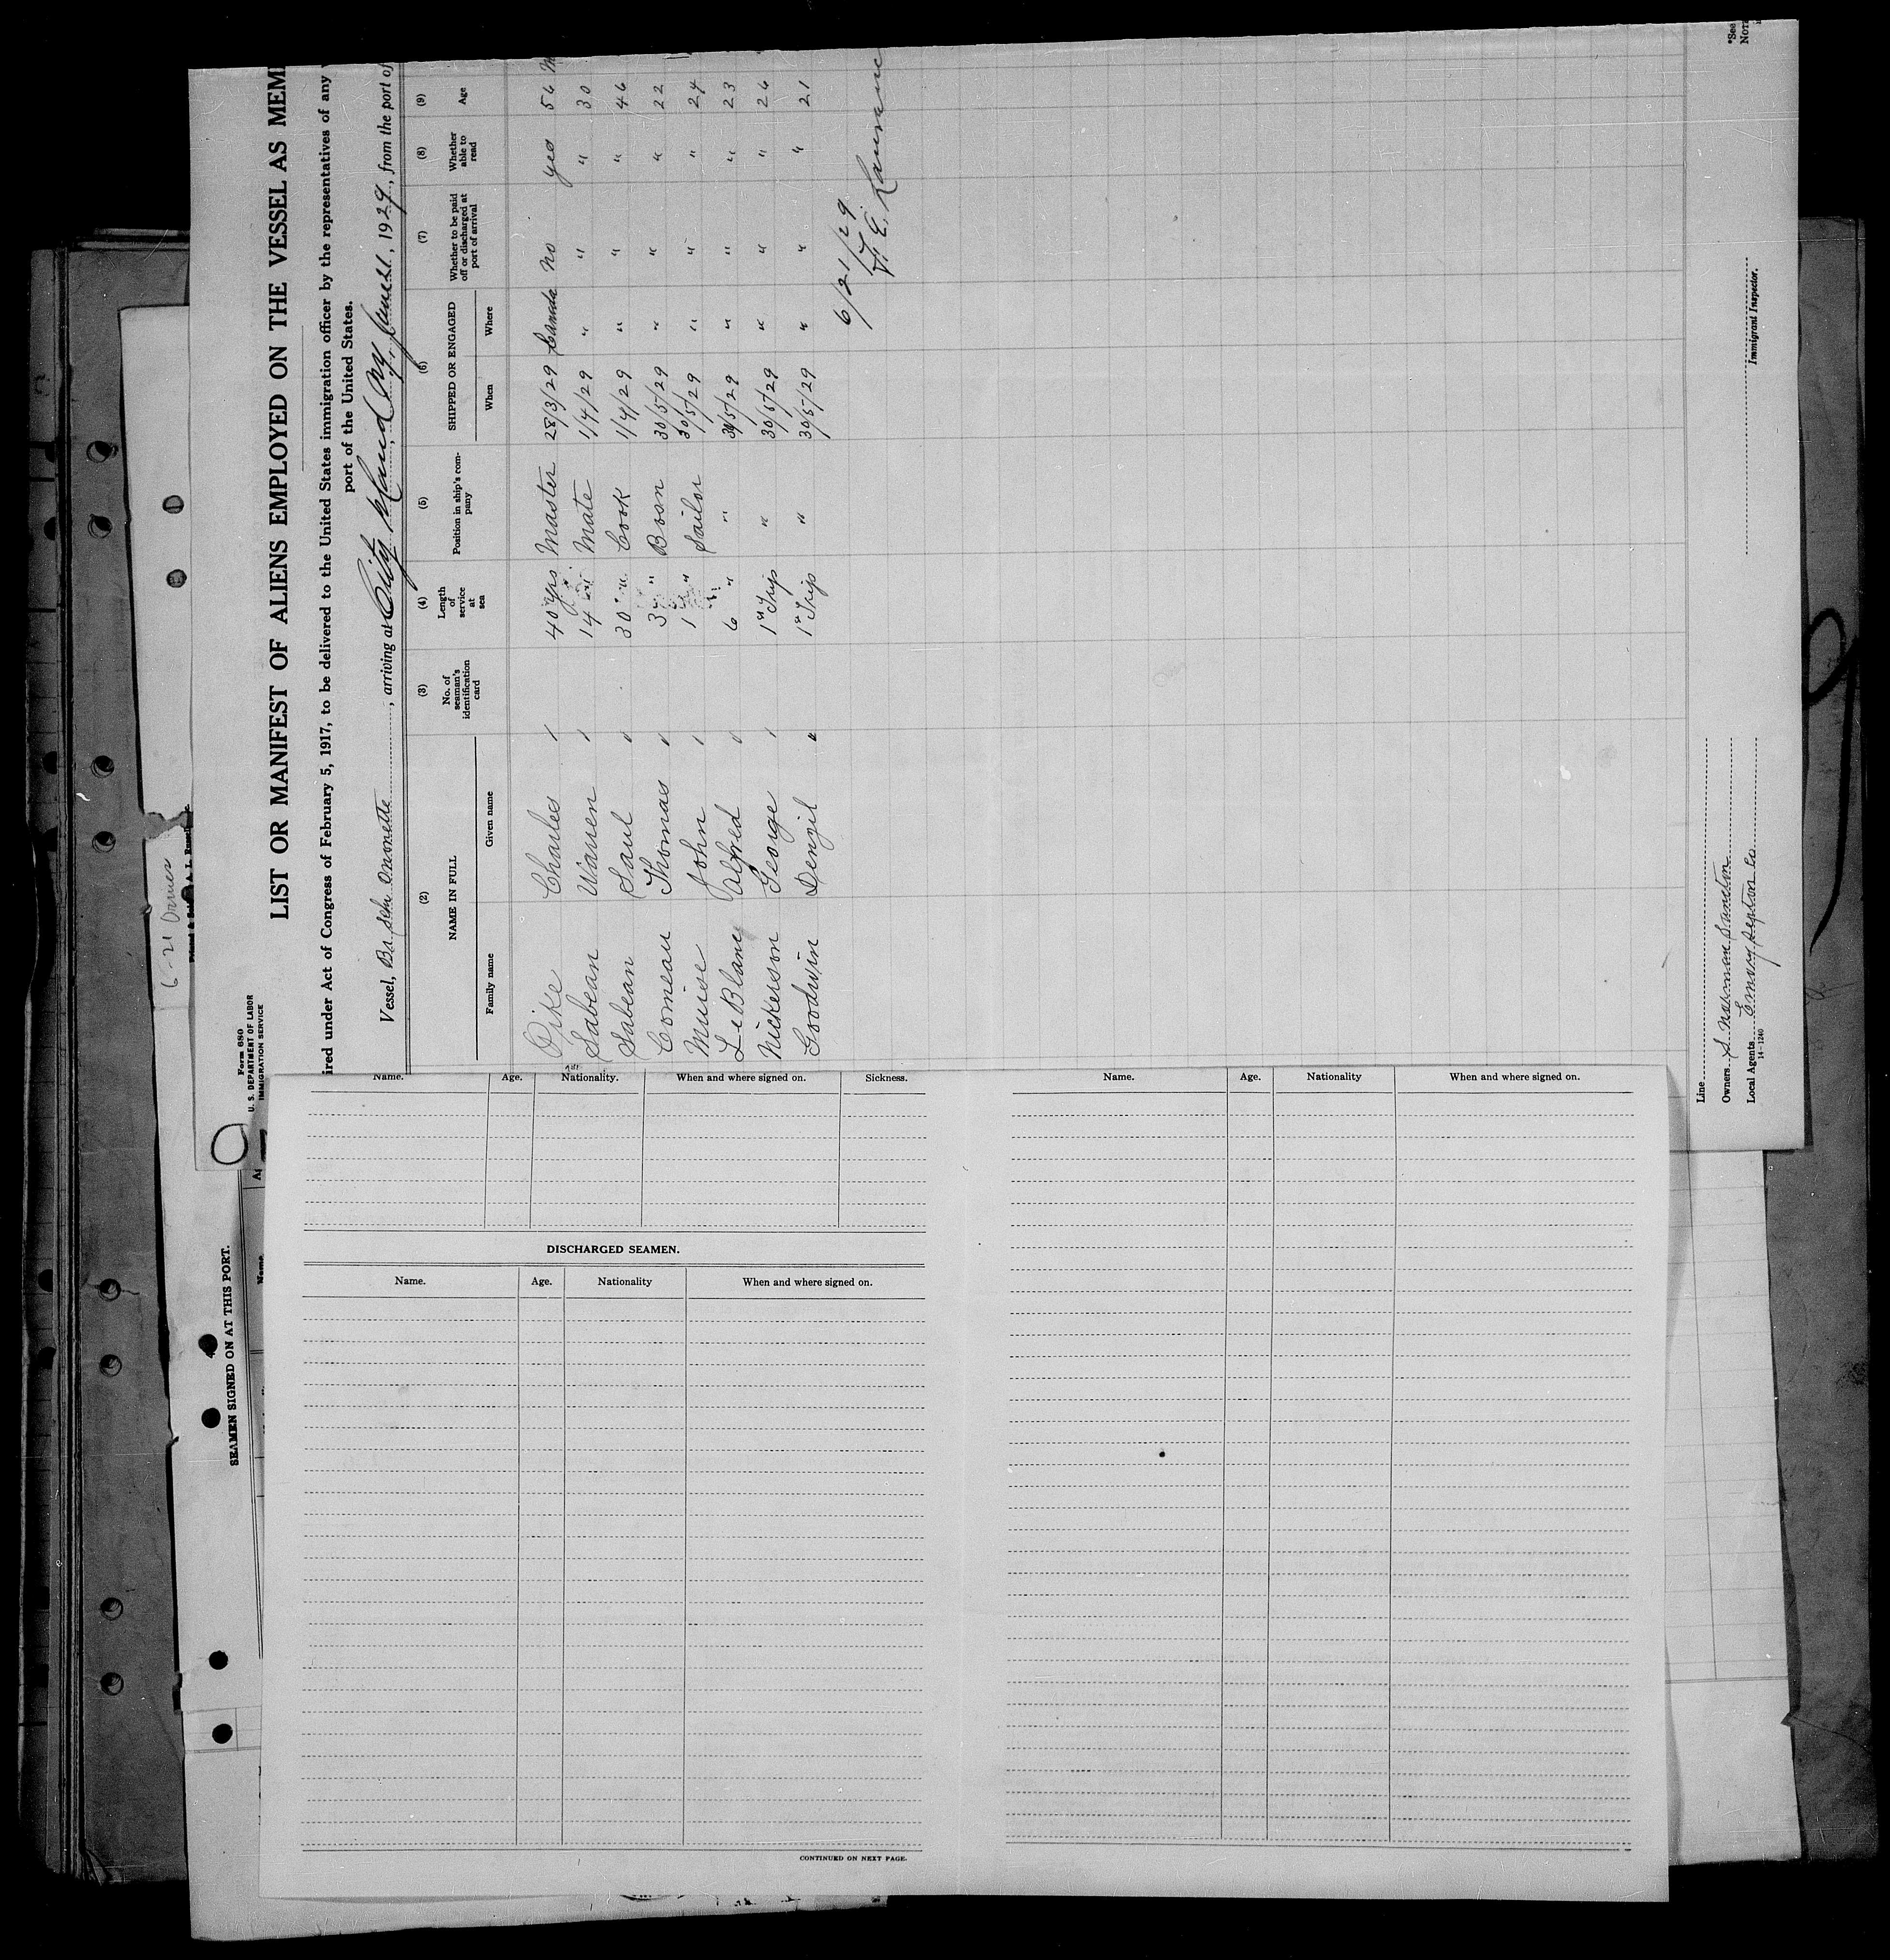 Form 680
U. S. DEPARTMENT OF LABOR
IMMIGRATION SERVICE
LIST OR MANIFEST OF ALIENS EMPLOYED ON THE VESSEL AS MEM
ired under Act of Congress of February 5, 1917, to be delivered to the United States immigration officer by the representatives of any
port of the United States.
Vessel, Br. Schr , arriving at City Island Ny, , 1929, from the port of
(2) (3) (4) (5) (6) (7) (8) (9)
NAME IN FULL No. of seaman's identification card Length of service at sea Position in ship's company SHIPPED OR ENGAGED Whether to be paid off or discharged at port of arrival Whether able to read Age
Family name Given name When Where
Pike Charles 40 yrs Master 28/3/29 Canada No yes 56 M
Sabean Warren 14 " Mate 1/4/29 " " " 30
Sabean Saul 30 " Cook 1/4/29 " " " 46
Comeau Thomas 3 " Bosn 30/5/29 " " " 22
Muise John 1 " Sailor 30/5/29 " " " 24
LeBlanc Alfred 6 " " 30/5/29 " " " 23
Nickerson George 1st Trip " 30/5/29 " " " 26
Goodwin Denzil 1st Trip " 30/5/29 " " " 21
6/21/29
Line
Owners
Local Agents
14-1240
Immigrant Inspector.
*See
6-21
A. L. Russell
SEAMEN SIGNED ON AT THIS PORT.
Name.
Name. Age. Nationality. When and where signed on. Sickness.
DISCHARGED SEAMEN.
Name. Age. Nationality When and where signed on.
CONTINUED ON NEXT PAGE.
Name. Age. Nationality When and where signed on.